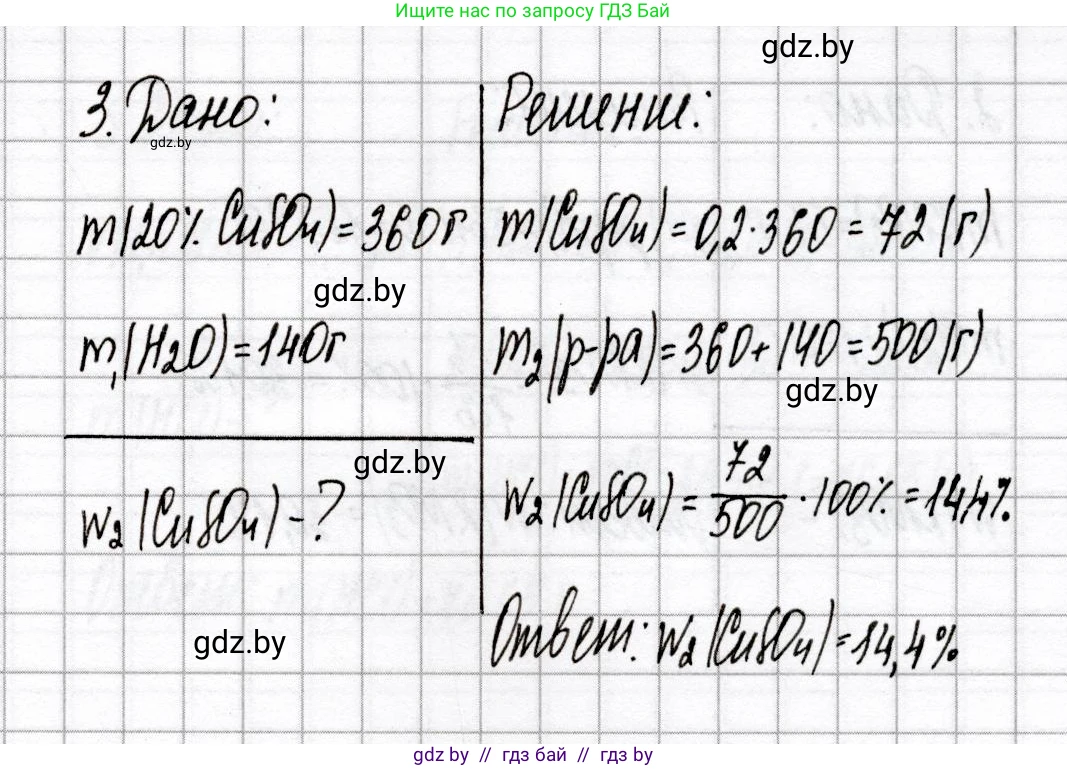 Ищите нас по запросу ГДЗ Бай
gdz.by
3. Дано:
gdz.by
m(20% CuSO₄) = 360 г
gdz.by
m₁(H₂O) = 140 г
gdz.by
w₂(CuSO₄) - ?
gdz.by
Решение:
m(CuSO₄) = 0,2 · 360 = 72 (г)
m₂(р-ра) = 360 + 140 = 500 (г)
gdz.by
w₂(CuSO₄) = 72/500 · 100% = 14,4%
Ответ: w₂(CuSO₄) = 14,4%.
gdz.by // гдз бай // гдз by